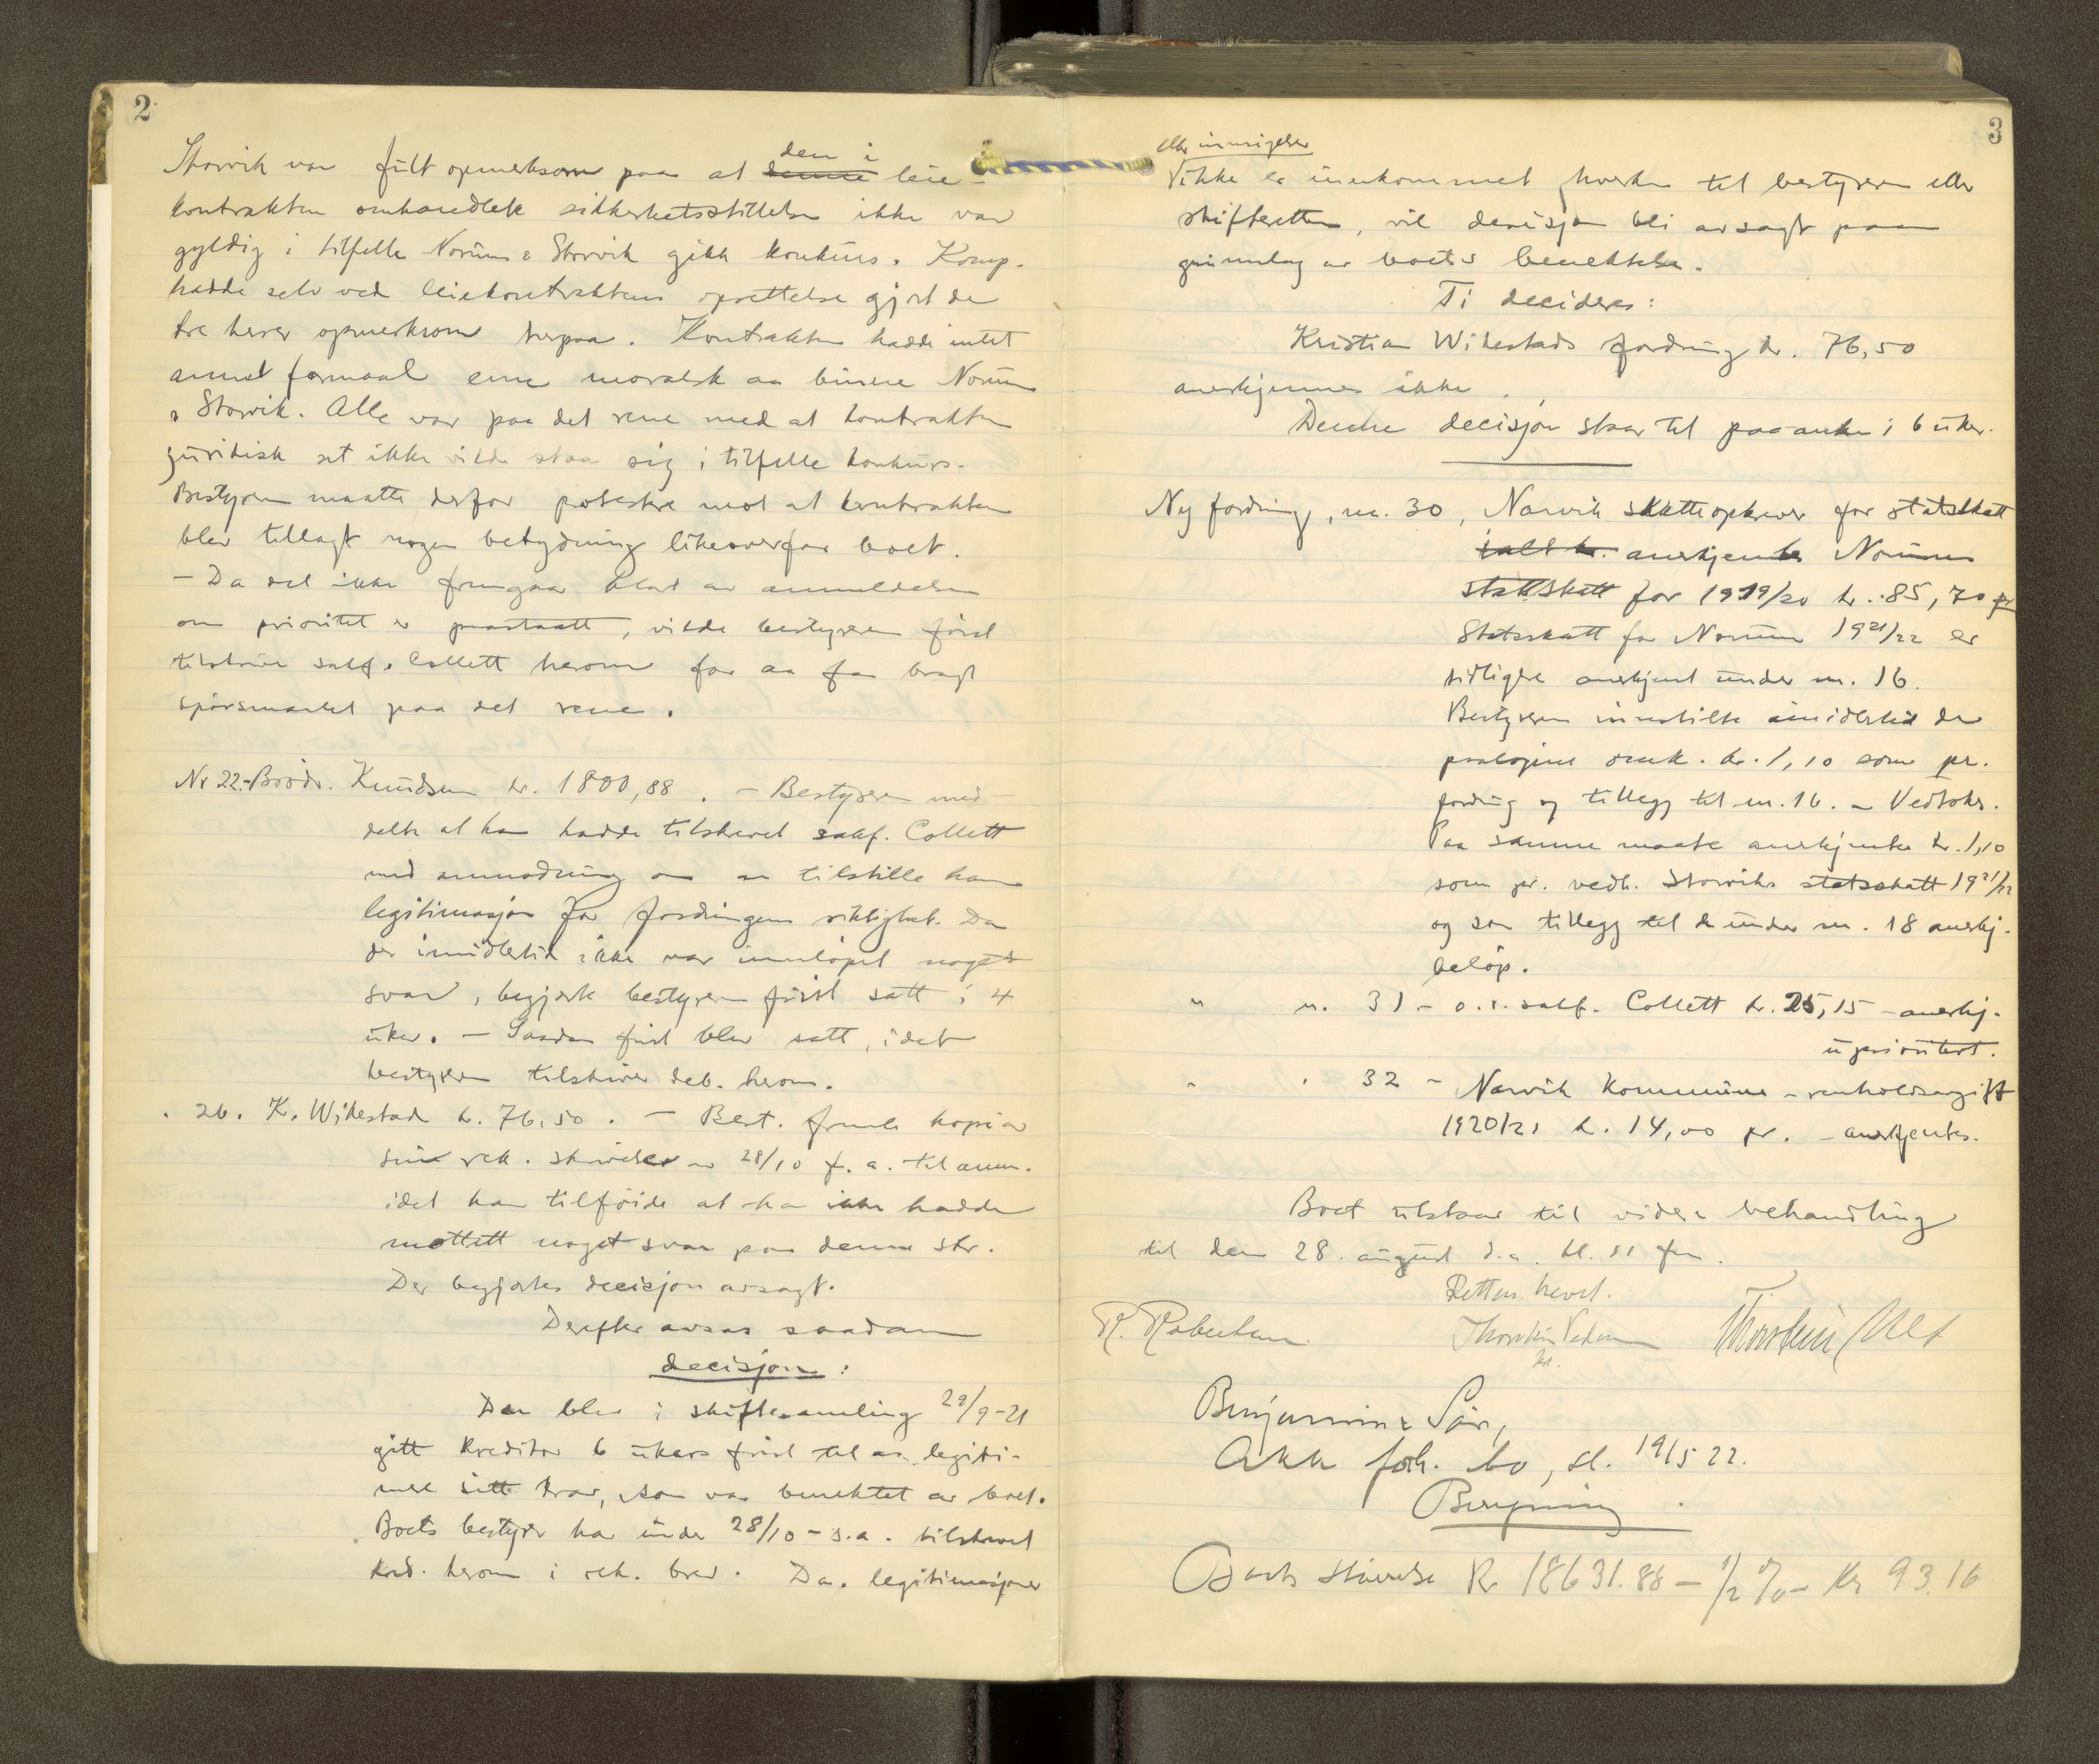 2
Storvik var fult opmerksom paa at den i leie-
kontrakten omhandlede sikkerhetsstillelse ikke var
gyldig i tilfelle Norum & Storvik gikk konkurs. Komp.
hadde selv ved leiekontraktens oprettelse gjort de
tre herrer opmerksom herpaa. Kontrakten hadde intet
annet formaal enn moralsk aa binne Norum
& Storvik. Alle var paa det rene med at kontrakten
juridisk set ikke vilde staa sig i tilfelle konkurs.
Bestyreren maatte derfor protestere mot at kontrakten
blev tillagt nogen betydning likeoverfor boet.
- Da det ikke fremgaar klart av anmeldelsen
om prioritet er paastaatt, vilde bestyreren først
tilskrive sakf. Collett herom for aa faa bragt
spørsmaalet paa det rene.
Nr 22.- Brødr. Knudsen kr. 1800,88. - Bestyreren med
delte at han hadde tilskrevet sakf. Collett
med anmodning om aa tilstille ham
legitimasjon for fordringens riktighet. Da
der imidlertid ikke var innløpet noget
svar, begjærte bestyreren frist satt i 4
uker. - Saadan frist blev satt, idet
bestyreren tilskriver deb. herom.
" 26. K. Wikestad kr. 76,50. - Best. freml. kopi av
sin rek. skrivelse av 28/10 f. a. til anm.
idet han tilføide at han ikke hadde
mottatt noget svar paa denne skr.
Der begjærtes decisjon avsagt.
Derefter avsas saadan
decisjon:
Der blev i skiftesamling 29/9-21
gitt kreditor 6 ukers frist til aa legiti-
mere sitt krav, som var benektet av boet.
Boets bestyrer har under 28/10 - s.a. tilskrevet
kred. herom i rek. brev. Da legitimasjoner
3
eller innsigelser
ikke er innkommet hverken til bestyreren eller
skifteretten, vil decisjon bli avsagt paa
grunnlag av boets benektelse.
Ti decideres:
Kristian Wikestads fordring kr. 76,50
anerkjennes ikke.
Denne decisjon staar til paaanke i 6 uker.
Ny fordring, nr. 30, Narvik skatteopkrever for statsskatt
ialt kr. anerkjentes Norums
statsskatt for 1919/20 kr. 85,70 pr
Statsskatt for Norum 1921/22 er
tidligere anerkjent under nr. 16.
Bestyreren innstilte imidlertid de
paaløpne omk. kr. 1,10 som pr.
fordring og tillegg til nr. 16. - Vedtokes.
Paa samme maate anerkjentes kr. 1,10
som pr. vedk. Storviks statsskatt 1921/22
og som tillegg til de under nr. 18 anerkj.
beløp.
" nr. 31 - o.r.sakf. Collett kr. 25,15 - anerkj.
uprioritert.
" " 32 - Narvik kommune - renholdsavgift
1920/21 kr. 14,00 pr. - anerkjentes.
Boet utstaar til videre behandling
til den 28. august d.a. kl. 11 fm.
Retten hevet.
R. Robertsen. Thorstein Pedersen Thorstein Alt
Benjamin & Søn,
Akk forh. bo, sl. 19/5 22.
Beregning.
Boets størrelse Kr 18631.88 - 1/2 % - Kr 93.16